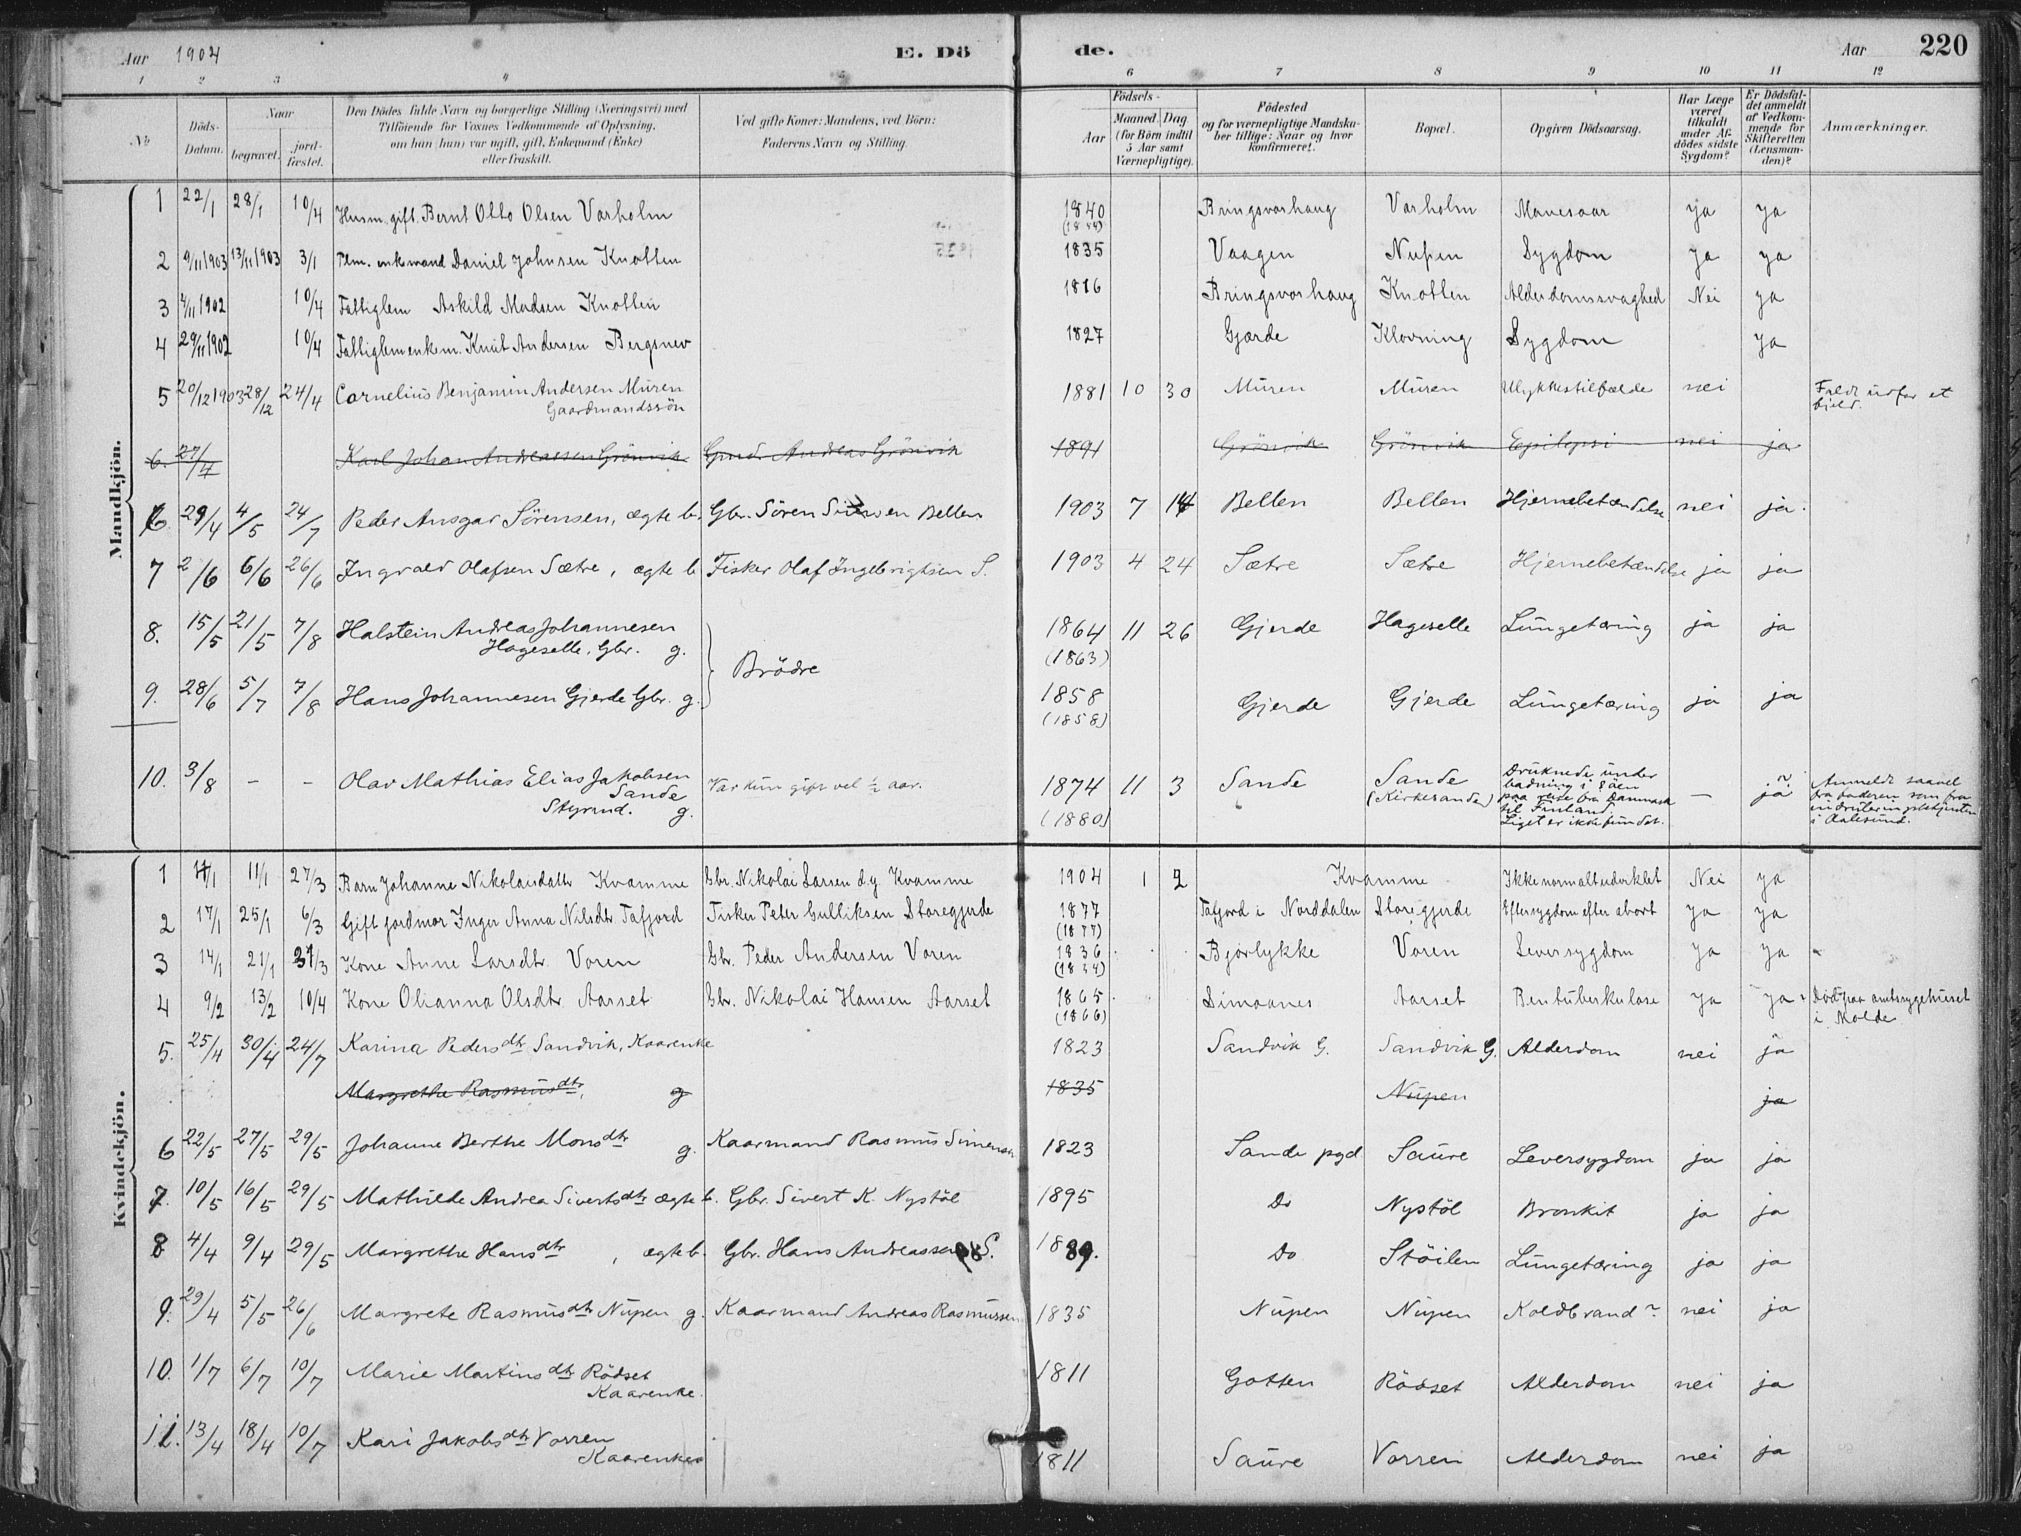 Aar 1904 E. Dö de. Aar 220
1 2 3 4 5 6 7 8 9 10 11 12
No Döds-Datum. Naar begravet. jord-fæstet. Den Dödes fulde Navn og borgerlige Stilling (Næringsvei) med Tilföiende for Voxnes Vedkommende af Oplysning, om han (hun) var ugift, gift, Enkemand (Enke) eller fraskilt. Ved gifte Koner: Mandens, ved Börn: Faderens Navn og Stilling. Födsels- Aar Maaned. Dag. (for Börn indtil 5 Aar samt Værnepligtige). Födested og for værnepligtige Mandskaber tillige: Naar og hvor konfirmeret. Bopæl. Opgiven Dödsaarsag. Har Læge været tilkaldt under Afdödes sidste Sygdom? Er Dödsfaldet anmeldt af Vedkommende for Skifteretten (Lensmanden)? Anmærkninger.
Mandkjön.
1 22/1 28/1 10/4 Husm. gift. Bernt Otto Olsen Varholm 1840 Bringsvorhaug Varholm Mavesaar ja ja
2 9/11 1903 13/11 1903 3/1 Plm. enkemand Daniel Johnsen Knotten 1835 Vaagen Nupen Sygdom ja ja
3 /11 1902 10/4 Fattiglem Askild Madsen Knotten 1816 Bringsvorhaug Knotten Alderdomssvaghed Nei ja
4 29/11 1902 10/4 Fattiglem enkem. Knut Andersen Bergsnev 1827 Gjærde Klovning Sygdom ja
5 20/12 1903 28/12 24/4 Cornelius Benjamin Andersen Muren 1881 10 30 Muren Muren Ulykkestilfælde nei Faldt udfor et
Gaardmandssön fjeld.
6. 27/4 Karl Johan Andreassen Grönvik Gmd. Andreas Grönvik 1891 Grönvik Grönvik Epilepsi nei ja
6 29/4 4/5 24/7 Peder Ansgar Sörensen, ægte b. Gbr. Sören Bellen 1903 7 14 Bellen Bellen Hjernebetændelse nei ja.
7 2/6 6/6 26/6 Ingvald Olafsen Sætre, ægte b. Fisker Olaf Ingebrigtsen S. 1903 4 24 Sætre Sætre Hjernebetændelse ja ja
8. 15/5 21/5 7/8 Halstein Andreas Johannesen 1864 11 26 Gjerde Hageselle Lungetæring ja ja
Hageselle, Gbr. g. (1863)
Brödre
9. 28/6 5/7 7/8 Hans Johannesen Gjerde Gbr. g. 1858 Gjerde Gjerde Lungetæring ja ja
(1858)
10. 3/8 – – Olav Mathias Elias Jakobsen Var kun gift vel ½ aar. 1874 11 3 Sande Sande Druknede under – ja Anmeldt saavel
Sande (1880) (Kirkesande) badning i Söen fra faderen som fra
Styrmd. g. paa reise fra Danmark
til Finland. i Aalesund.
Liget er ikke fundet.
Kvindekjön.
1 4/1 11/1 27/3 Barn Johanne Nikolaisdattr Kvamme Gbr. Nikolai Larsen d.y. Kvamme 1904 1 2 Kvamme Ikke normalt udviklet Nei ja
2 17/1 25/1 6/3 Gift jordmor Inger Anna Nilsdtr Tafjord Fisker Peter Gulliksen Storegjerde 1877 Tafjord i Norddalen Storegjerde Eftersygdom efter abort ja ja
(1877)
3 14/1 21/1 27/3 Kone Anne Larsdtr. Voren Gbr. Peder Andersen Voren 1836 Bjørlykke Voren Leversygdom ja ja
4 9/2 13/2 10/4 Kone Olianna Olsdtr Aarset Gbr. Nikolai Hansen Aarset 1865 Dimoanes Aarset Bentuberkulose ja ja Død paa amtssygehuset
(1866) i Molde
5. 25/4 30/4 24/7 Karina Pedersdtr Sandvik, Kaarenke 1823 Sandvik G. Sandvik G. Alderdom nei ja
Margrethe Rasmusdtr, g 1835 Nupen ja
6 22/5 27/5 29/5 Johanne Berthe Monsdtr g. Kaarmand Rasmus Simensen 1823 Sande pgd Saure Leversygdom ja ja
7. 10/5 16/5 29/5 Mathilde Andrea Sivertsdtr ægte b. Gbr. Sivert K. Nystöl 1895 Do Nystöl Bronkit ja ja
8 4/4 9/4 29/5 Margrethe Hansdtr, ægte b. Gbr. Hans Andreassen S. 1889. Do Stöilen Lungetæring ja ja
9. 29/4 5/5 26/6 Margrete Rasmusdtr Nupen g. Kaarmand Andreas Rasmussen 1835 Nupen Nupen Koldbrand? nei ja
10. 1/7 6/7 10/7 Marie Martinsdtr Rödset 1811 Gotten Rödset Alderdom nei ja
Kaarenke.
11. 13/4 18/4 10/7 Kari Jakobsdtr Vorren 1811 Saure Vorren Alderdom nei ja
Kaarenke